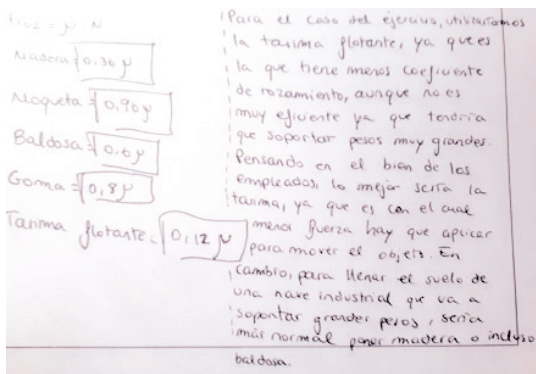 = μ · N
Madera = 0,36 μ
Moqueta = 0,90 μ
Baldosa = 0,6 μ
Goma = 0,8 μ
Tarima flotante = 0,12 μ
Para el caso del ejercicio, utilizaríamos
la tarima flotante, ya que es
la que tiene menos coeficiente
de rozamiento, aunque no es
muy eficiente ya que tendría
que soportar pesos muy grandes.
Pensando en el bien de los
empleados, lo mejor sería la
tarima, ya que es con el cual
menor fuerza hay que aplicar
para mover el objeto. En
cambio, para llenar el suelo de
una nave industrial que va a
soportar grandes pesos, sería
más normal poner madera o incluso
baldosa.